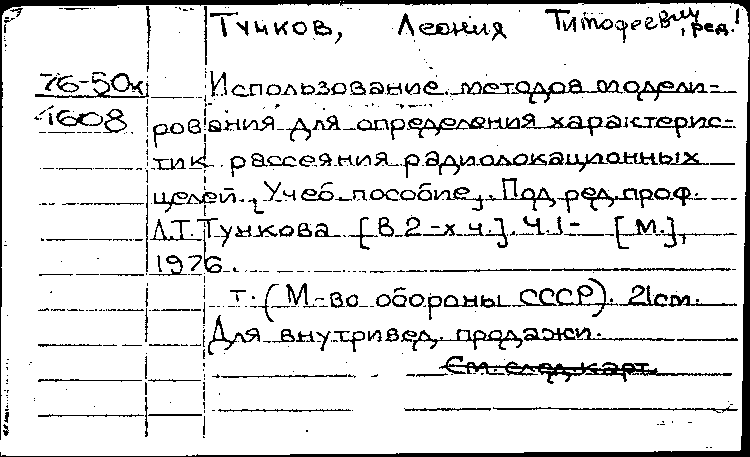 Тучков, Леонид Тимофеевич, ред.!
76-50к Использование методов модели-
1608 рования для определения характерис-
тик рассеяния радиолокационных
целей. [Учеб. пособие]. Под ред. проф.
Л.Т. Тучкова [В 2-х ч.]. Ч.1- [М.],
1976.
т. (М-во обороны СССР). 21см.
Для внутривед. продажи.
См. след. карт.